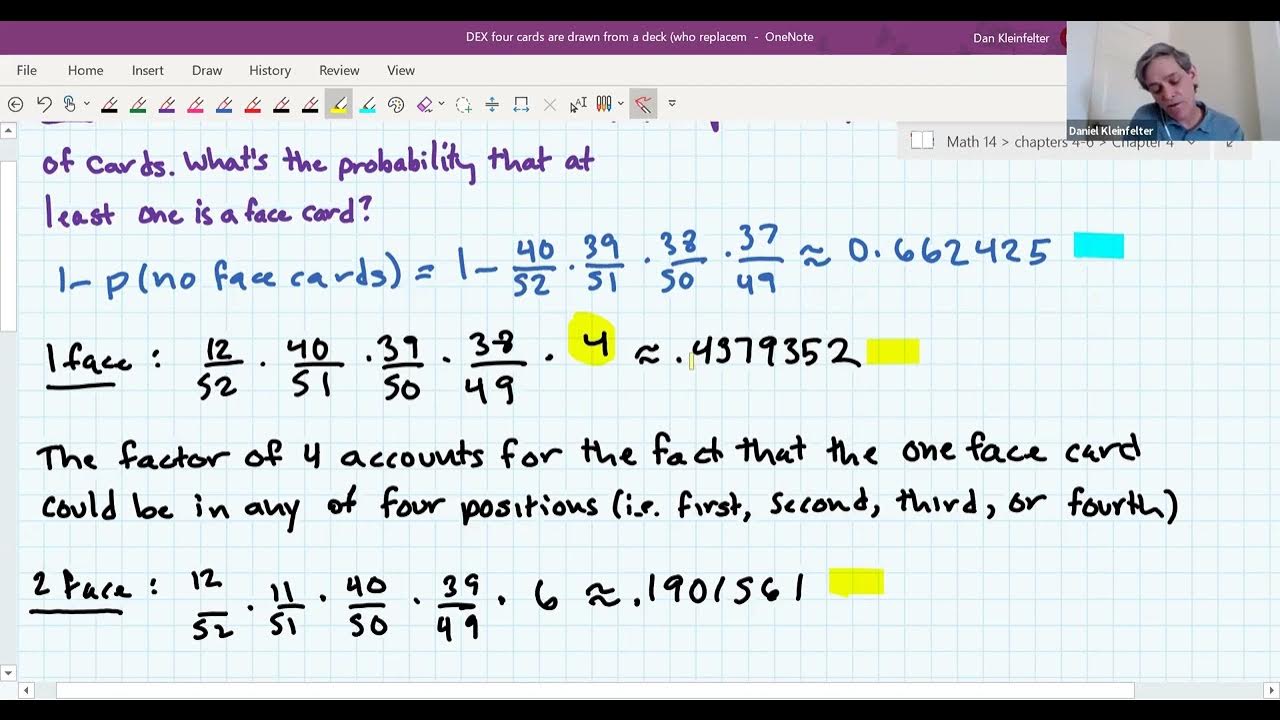 DEX four cards are drawn from a deck (who replacem - OneNote
Dan Kleinfelter
File Home Insert Draw History Review View
Daniel Kleinfelter
Math 14 > chapters 4-6 > Chapter 4
of cards. What's the probability that at
least one is a face card?
1 - p(no face cards) = 1 - 40/52 · 39/51 · 38/50 · 37/49 ≈ 0.662425
1 face : 12/52 · 40/51 · 39/50 · 38/49 · 4 ≈ .4379352
The factor of 4 accounts for the fact that the one face card
could be in any of four positions (i.e. first, second, third, or fourth)
2 face : 12/52 · 11/51 · 40/50 · 39/49 · 6 ≈ .1901561